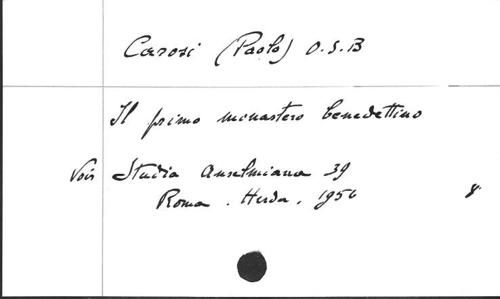 Carosi (Paolo) O.S.B
Il primo monastero benedettino
Voir Studia Anselmiana 39
Roma. Herda. 1956
8